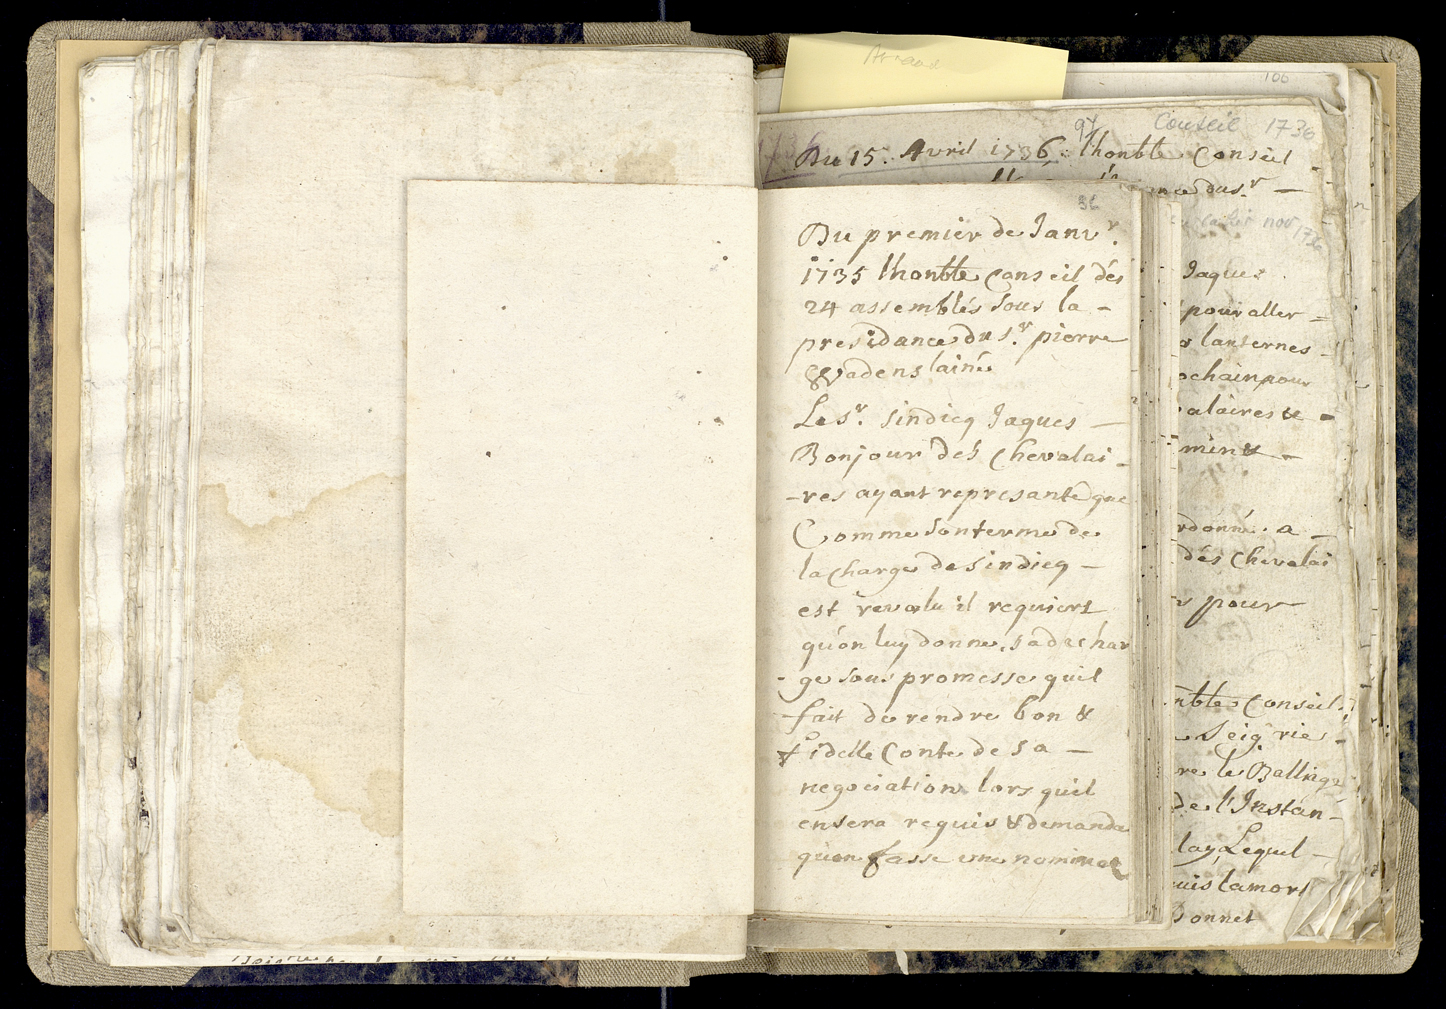 106
97 Conseil 1736
Du 15. Avril 1736. lhonble Conseil
Du premier de Janvr.
1735 lhonble Conseil dés
24 assemblés sous la -
presidance du sr. pierre
Vadens lainé
Le sr. sindicq Jaques -
Bonjour des Chevalai-
-res ayant represanté que
Comme son terme de
la charge de sindicq -
est revolu il requiert
qu'on luy donne, sa deschar
ge sous promesse quil
fait de rendre bon &
fidelle Conte de sa -
negociation lors quil
en sera requis & demande
qu'on fasse une
Jaques
pour aller -
lanternes
pour
alaires & -
a -
dés Chevalai
pour
Conseil.
Seigrie
re le
de l'Instan-
Lequel -
la mort